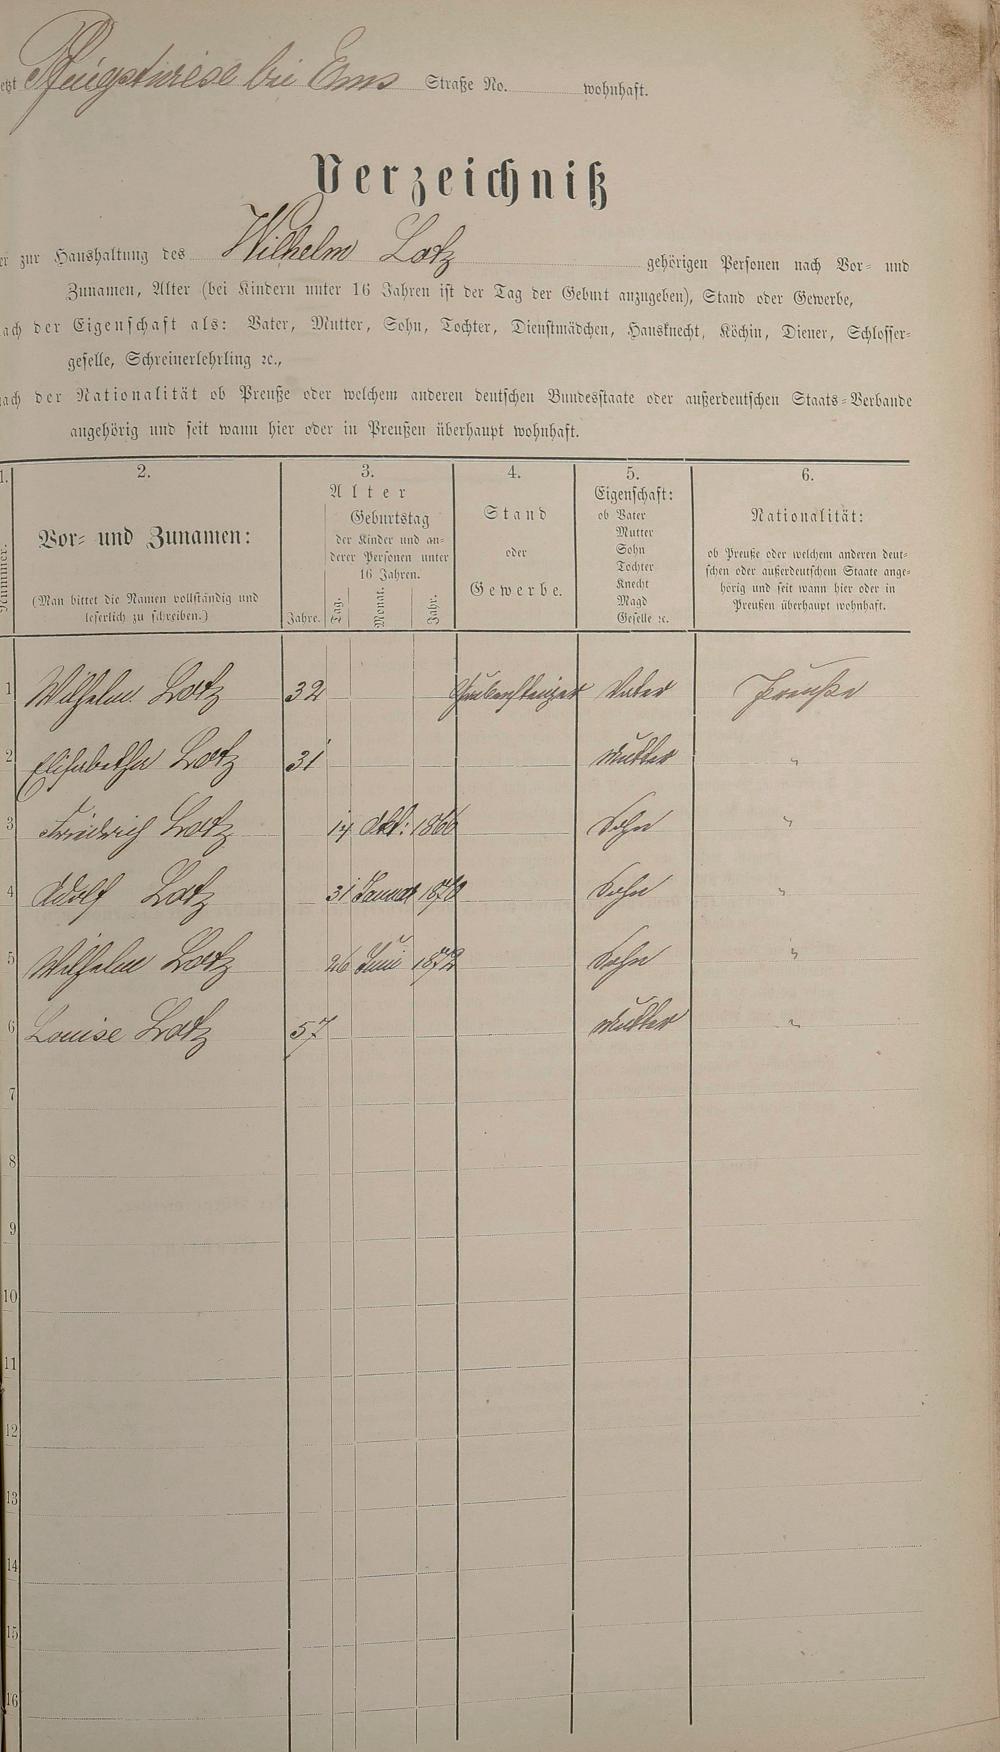 etzt Pfingstwiese bei Ems Straße No. wohnhaft.
Verzeichniß
er zur Haushaltung des Wilhelm Lotz gehörigen Personen nach Vor- und
Zunamen, Alter (bei Kindern unter 16 Jahren ist der Tag der Geburt anzugeben), Stand oder Gewerbe,
nach der Eigenschaft als: Vater, Mutter, Sohn, Tochter, Dienstmädchen, Hausknecht, Köchin, Diener, Schlosser-
geselle, Schreinerlehrling ꝛc.,
nach der Nationalität ob Preuße oder welchem anderen deutschen Bundesstaate oder außerdeutschen Staats-Verbande
angehörig und seit wann hier oder in Preußen überhaupt wohnhaft.
1.
Nummer.
2.
Vor- und Zunamen:
(Man bittet die Namen vollständig und
leserlich zu schreiben.)
3.
Alter
Geburtstag
der Kinder und an-
derer Personen unter
16 Jahren.
Jahre. Tag. Monat. Jahr.
4.
Stand
oder
Gewerbe.
5.
Eigenschaft:
ob Vater
Mutter
Sohn
Tochter
Knecht
Magd
Geselle ꝛc.
6.
Nationalität:
ob Preuße oder welchem anderen deut-
schen oder außerdeutschem Staate ange-
hörig und seit wann hier oder in
Preußen überhaupt wohnhaft.
1 Wilhelm Lotz 32 Grubensteiger Vater Preuße
2 Elisabetha Lotz 31 Mutter "
3 Friedrich Lotz 14 Okt: 1866 Sohn "
4 Adolf Lotz 31 Januar 1870 Sohn "
5 Wilhelm Lotz 26 Juni 1872 Sohn "
6 Louise Lotz 57 Mutter "
7
8
9
10
11
12
13
14
15
16